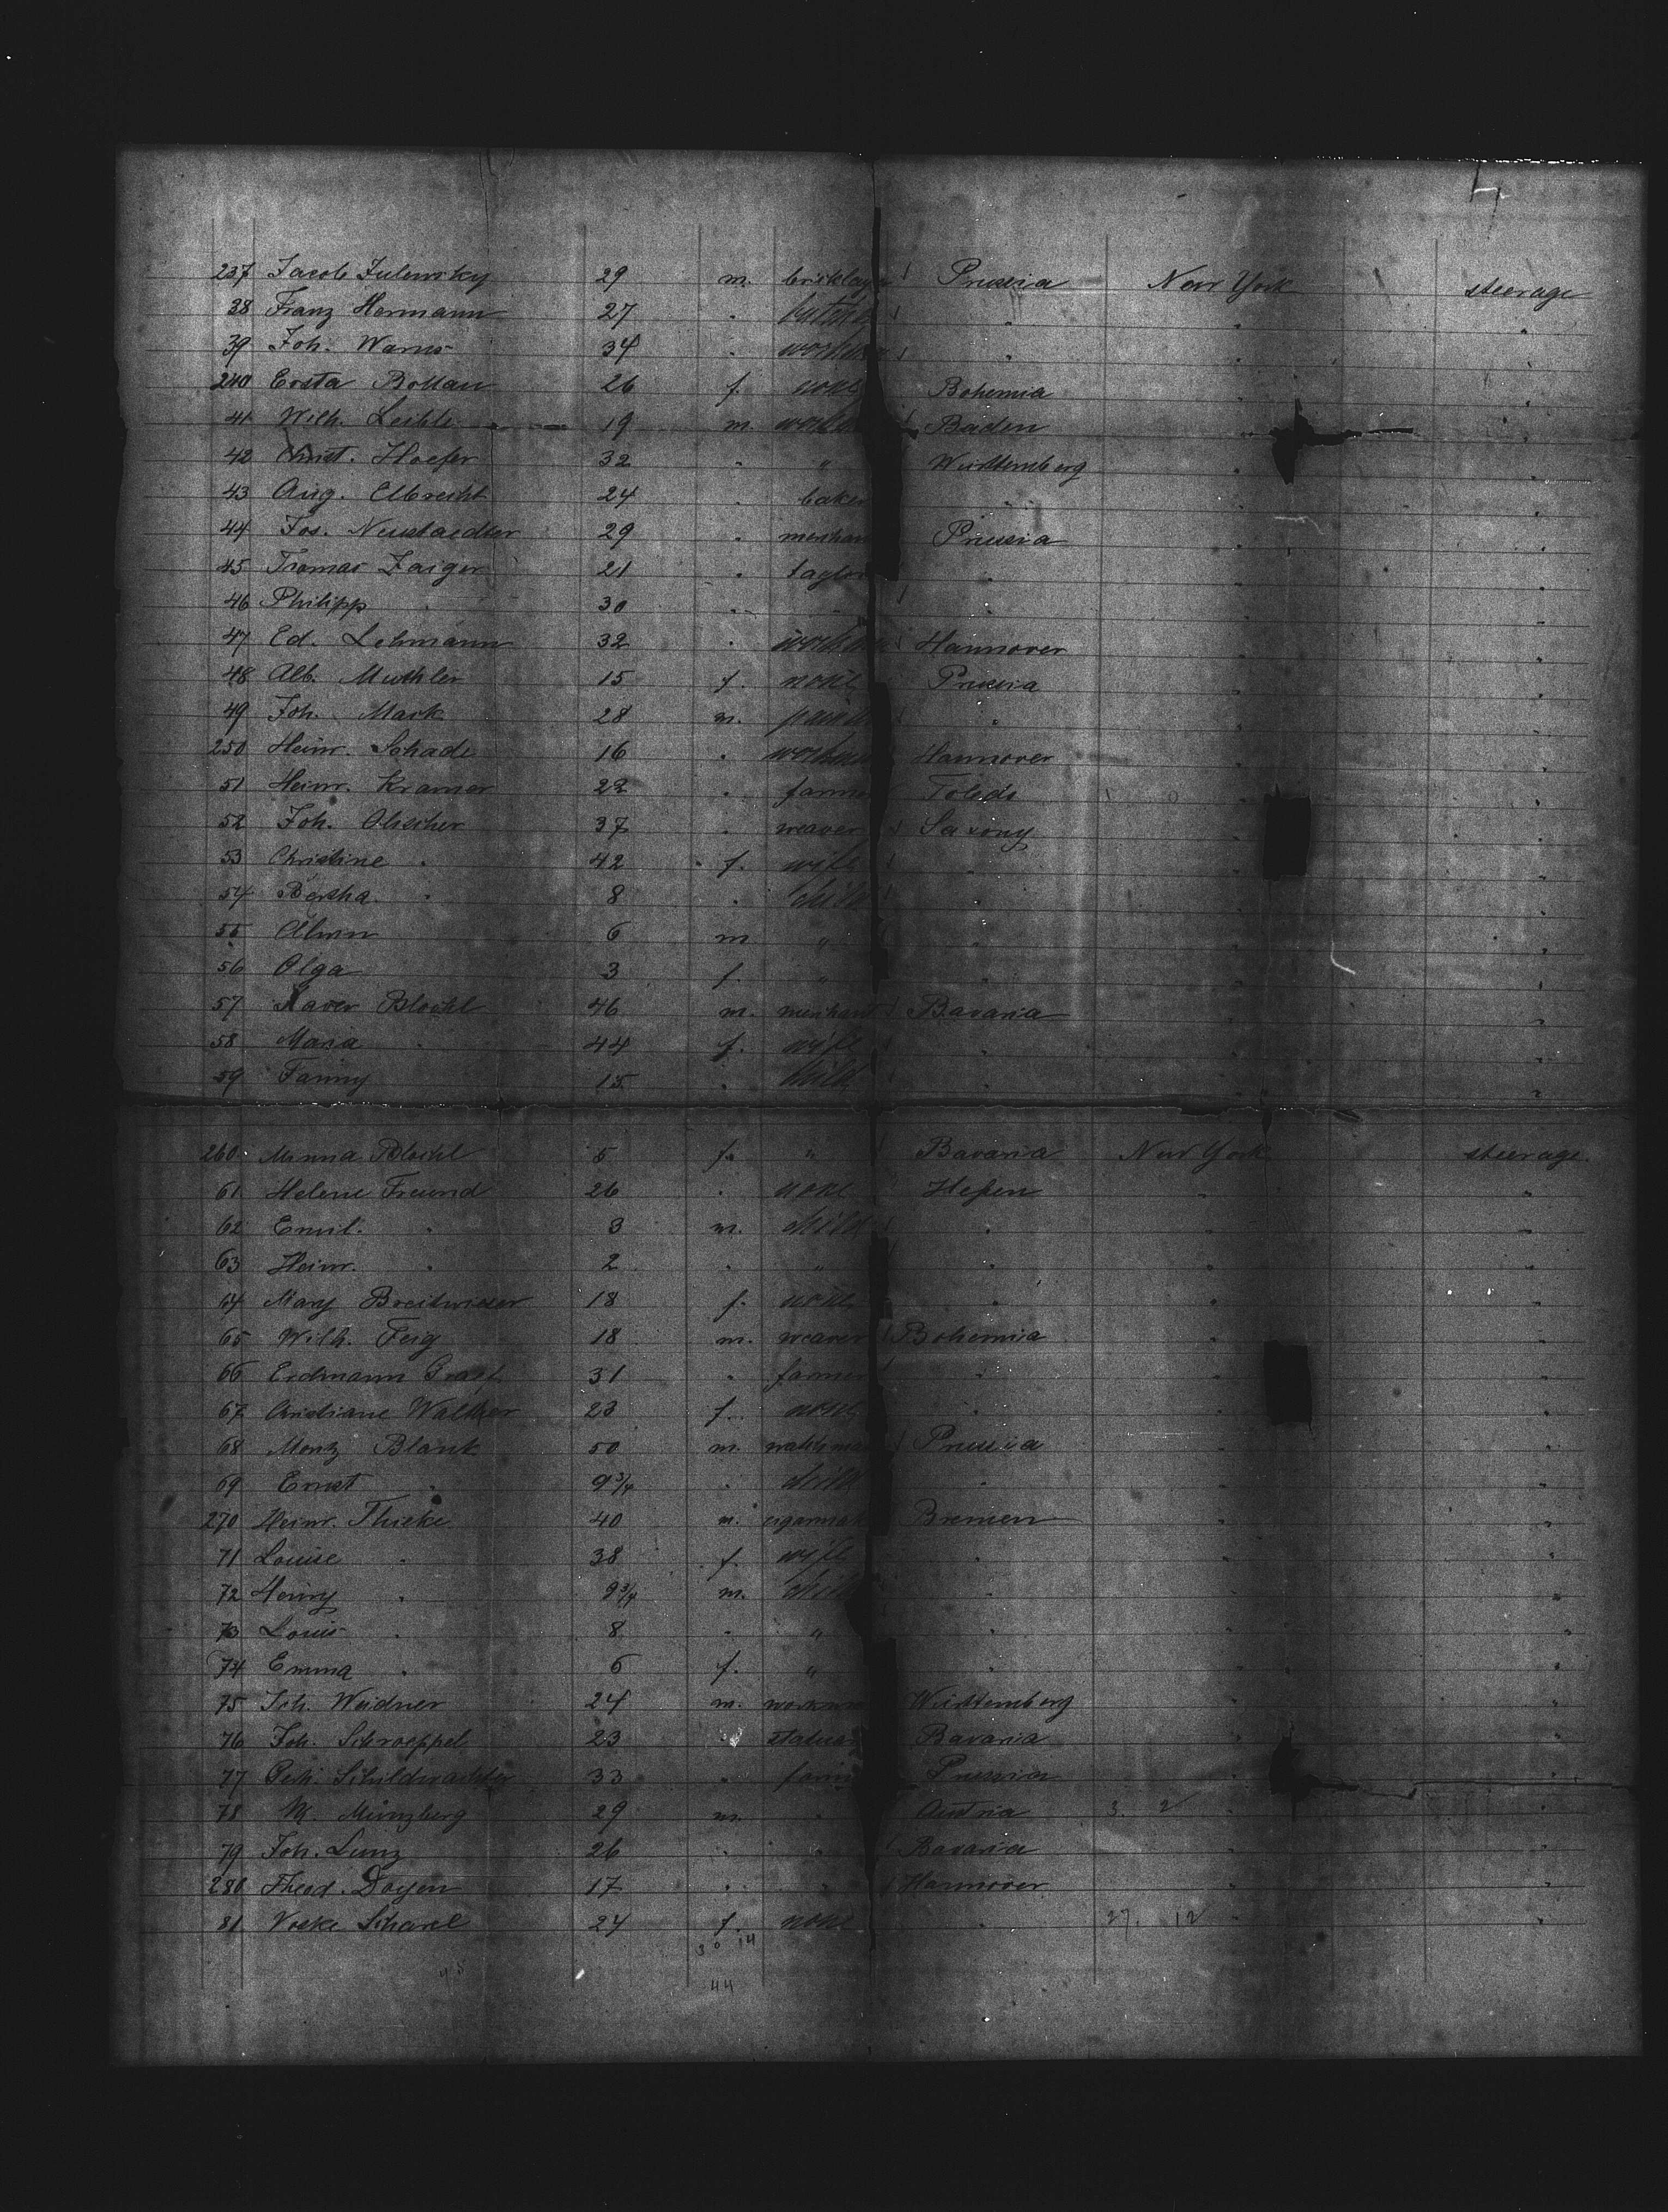 237 Jacob Julewsky 29 m. bricklayer Prussia New York steerage
38 Franz Hermann 27 " " " "
39 Joh. Warns 34 " workman " " "
240 26 f. none Bohemia " "
41 Wilh. Leible 19 m. work Baden " "
42 Christ. Hoefer 32 " " Württemberg " "
43 Aug. Elbrecht 24 baker " " "
44 Jos. Neustaedter 29 " merchan Prussia " "
45 Tomas Zaiger 21 " taylor " " "
46 Philipp " 30 " " " " "
47 Ed. Lehmann 32 " workman Hannover " "
48 Alb. 15 f. none Prussia " "
49 Joh. Mark 28 m. paint " " "
250 Heinr. Schade 16 " workm Hannover " "
51 Heinr. Kramer 22 " farme Toledo "
52 Joh. Olscher 37 " weaver Saxony "
53 Christine " 42 f. wife " " "
54 Bertha " 8 " child " " "
55 Alwin 6 m. " " " "
56 Olga 3 f. " " " "
57 Xaver Bloehl 46 m. merchant Bavaria " "
58 Maria " 44 f. wife " " "
59 Fanny 15 " child " " "
260 Minna Bloehl 5 f. " Bavaria New York steerage
61 Helene Freund 26 " none Heßen " "
62 Emil " 3 m. child " " "
63 Heinr. " 2 " " " " "
64 Mary Breitwieser 18 f. none " " "
65 Wilh. Feig 18 m. weaver Bohemia " "
66 Erdmann 31 " farmer " "
67 Christiane Walther 23 f. none " "
68 Blank 50 m. Prussia " "
69 Ernst " 9 3/4 " child " " "
270 Heinr. Thieke 40 m. cigarmak Bremen " "
71 Louise " 38 f. wife " " "
72 Henry " 9 3/4 m. child " " "
73 Louis " 8 " " " " "
74 Emma " 6 f. " " " "
75 Joh. Weidner 24 m. workm Württemberg " "
76 Joh. Schroeppel 23 Bavaria " "
77 Schildwachter 33 " farm Prussia " "
78 W. Münzberg 29 m. " Austria 3. 2 " "
79 Joh. Lunz 26 " " Bavaria " "
280 Theod. Doyen 17 " " Hannover " "
81 24 f. none " 27. 12 " "
30 14
45 44